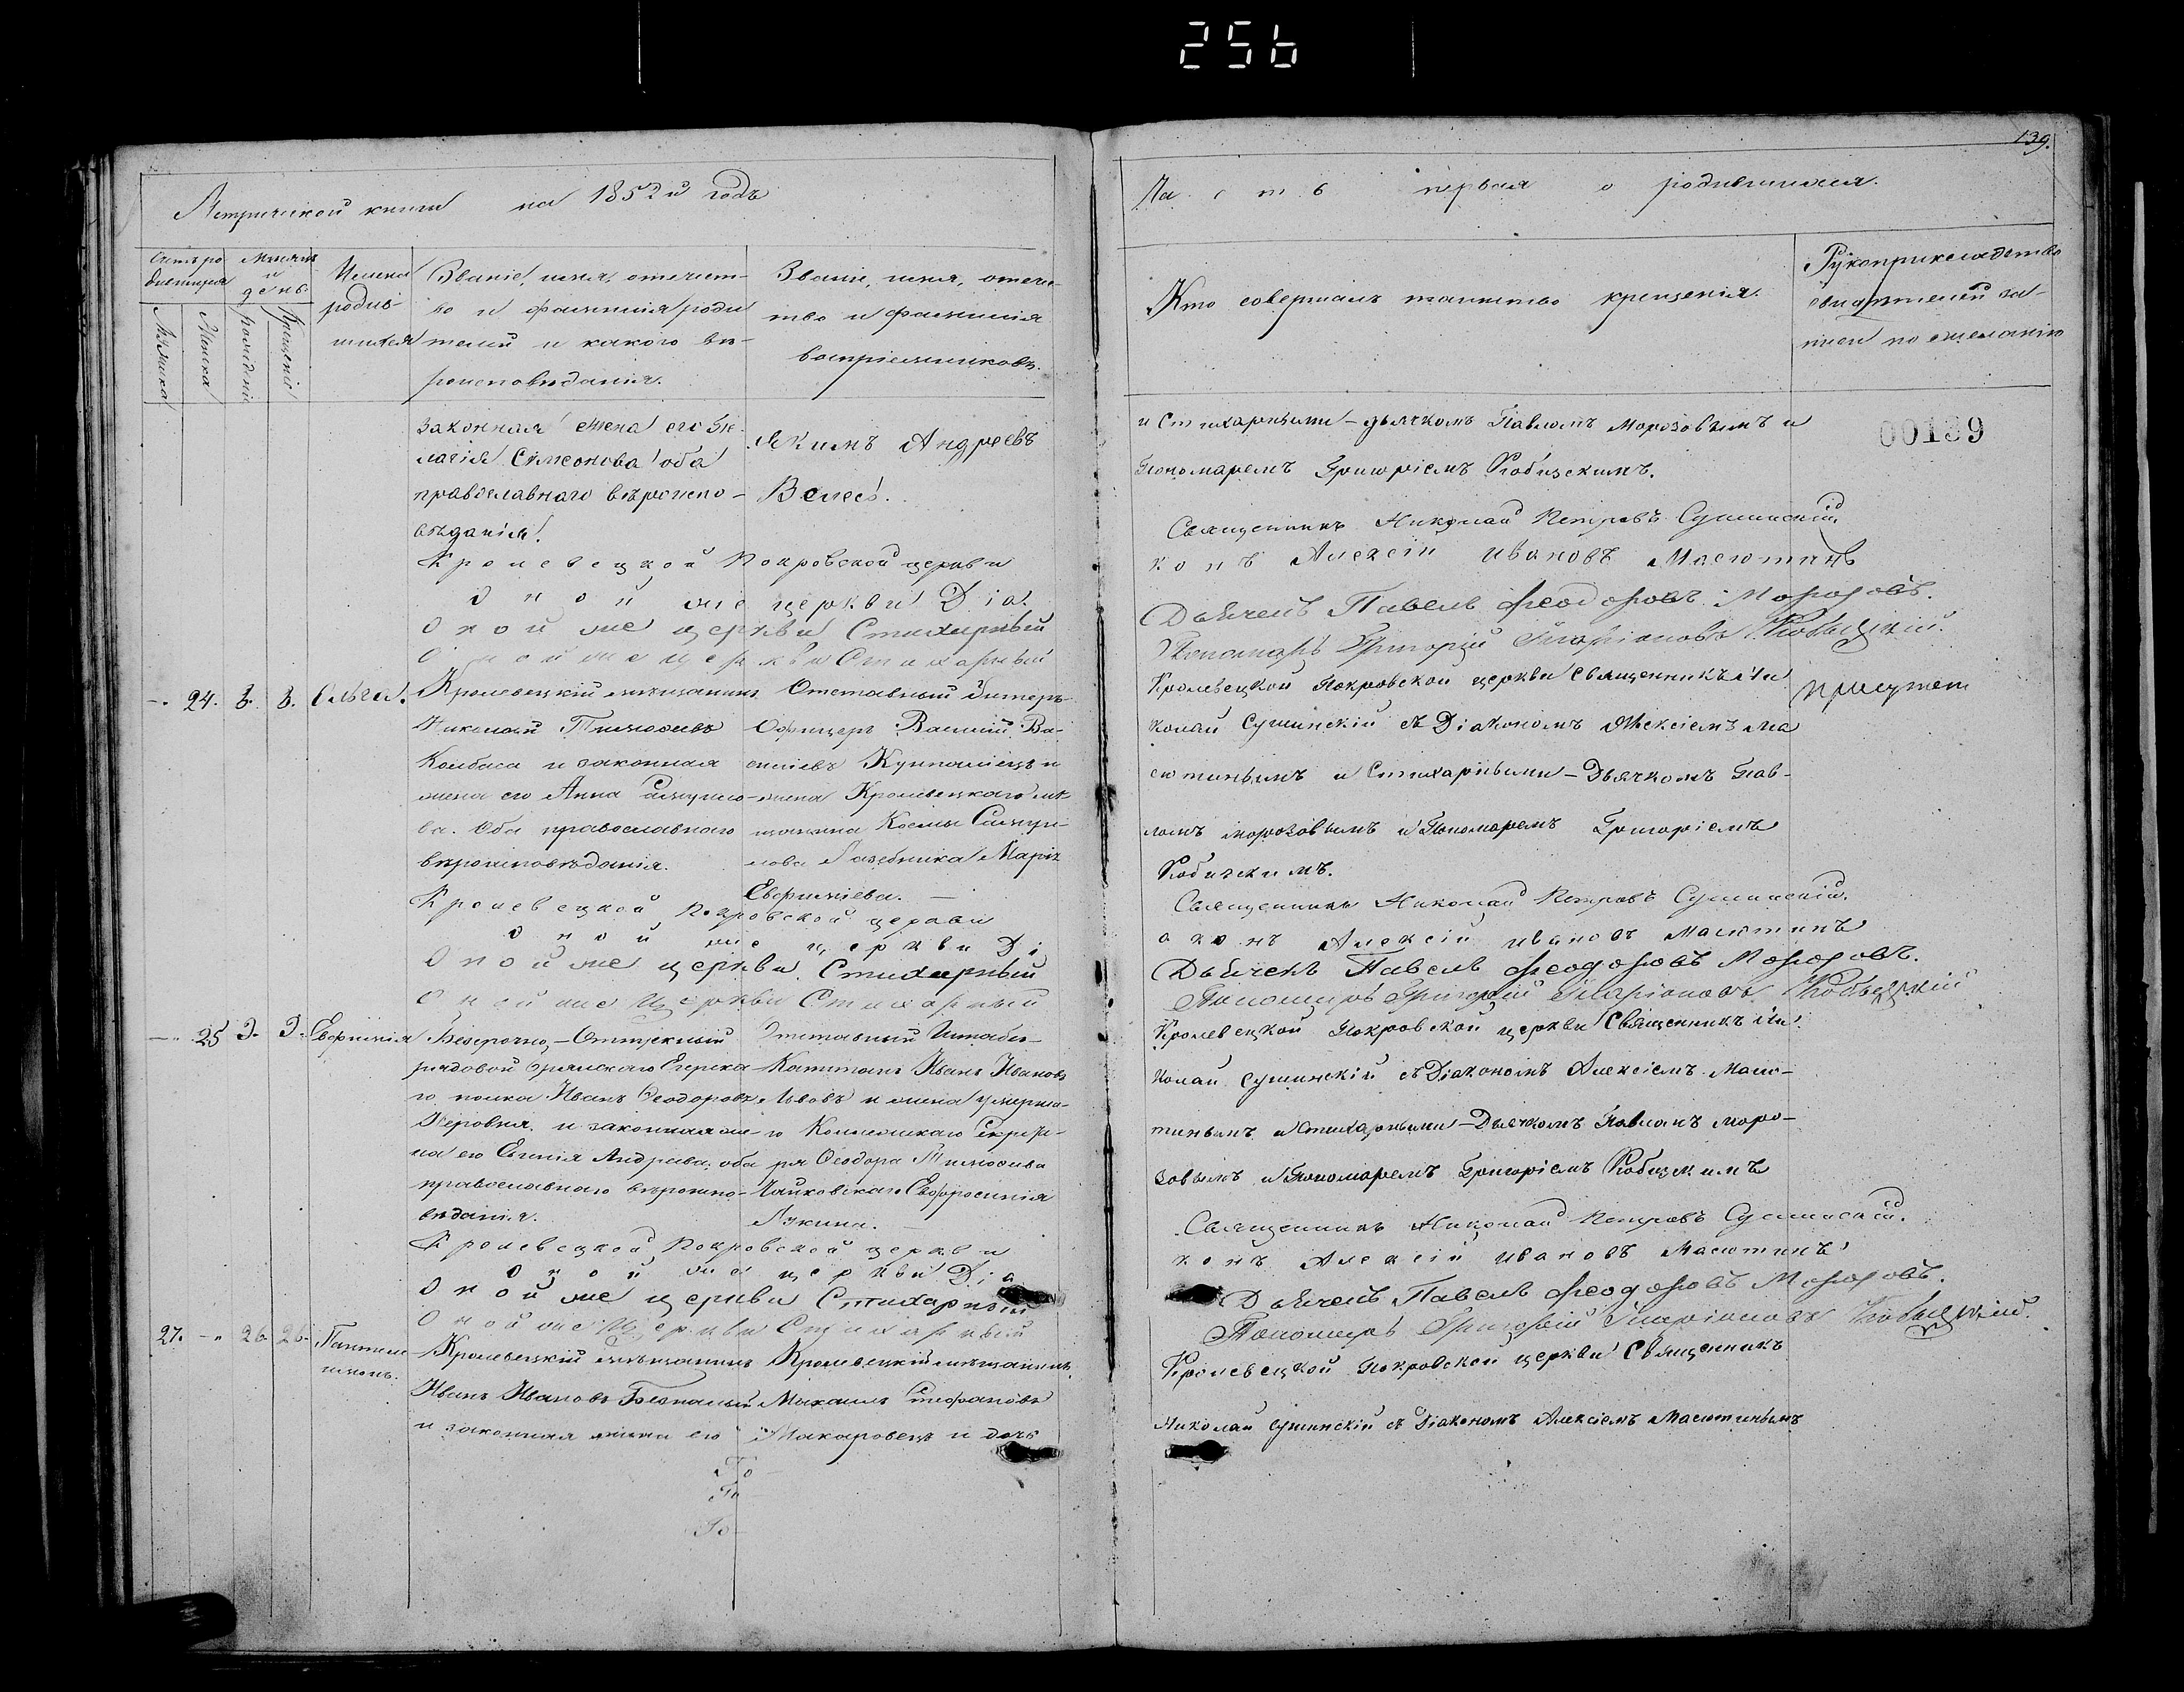 256
139.
Метрической книги на 1852й годъ
Счетъ ро
дившихся
Мужска
Женска
Мѣсяцъ
и
день.
рожденiе
Крещенiе
Имена
родив-
шихся
Званiе, имя, отчест-
во и фамилiя роди
телей и какого вѣ-
роисповѣданiя.
Званiе, имя, отчес
тво и фамилiя
воспрiемниковъ.
законная жена его Пе-
лагiя Симеонова оба
православнаго вѣроиспо-
вѣданiя.
Якимъ Андреевъ
Велесъ.
Кролевецкой Покровской церкви
Оной же церкви Дiа
Оной же церкви Стихарный
Оной же церкви Стихарный
24. 8. 8. Ольга.
Кролевецкiй мѣщанинъ
Николай Тимофеевъ
Колбаса и законная
жена его Анна
ва. Оба православнаго
вѣроисповѣданiя.
Отставный Унтеръ-
Офицеръ Василiй Ва-
силiевъ и
жена Кролевецкаго мѣ-
щанина Космы Самуи-
лова Лазебника Марiя
Евфимiева.
Кролевецкой Покровской церкви
Оной же церкви Дi
Оной же церкви Стихарный
Оной же церкви Стихарный
25 9. 9. Евфимiя
Безсрочно-Отпускный
рядовой Орлскаго Егерска
го полка Иванъ Феодоровъ
и законная же-
на его Евгенiя Андреева, оба
православнаго вѣроиспо-
вѣданiя.
Отставный Штабсъ-
Капитанъ Иванъ Ивановъ
Львовъ и жена умерша-
го Коллежскаго Секрета-
ря Феодора Тимофеева
Чайковскаго Евфросинiя
Лукина.
Кролевецкой Покровской церкви
Оной же церкви Дiа
Оной же церкви Стихарный
Оной же церкви Стихарный
27. 26. 26. Пантелеи
монъ.
Кролевецкiй мѣщанинъ
Иванъ Ивановъ
и законная жена его
Кролевецкiй мѣщанинъ
Михаилъ Стефановъ
Макаровецъ и дочь
По
По
По
Часть первая о родившихся.
Кто совершалъ таинство крещенiя.
Рукоприкладство
свидѣтелей за-
писи по желанiю
00139
и Стихарными-дьячкомъ Павломъ Морозовымъ и
Пономаремъ Григорiемъ Кобизскимъ.
Священникъ Николай Петровъ Сушинскiй.
конъ Алексiй Ивановъ Масютинъ
Дьячекъ Павелъ Феодоровъ Морозовъ.
Пономарь Григорiй Иларiоновъ Кобызскiй.
Кролевецкой Покровской церкви Священникъ Ни
колай Сушинскiй съ Дiакономъ Алексiемъ Ма
сютинымъ и Стихарными-Дьячкомъ Пав-
ломъ Морозовымъ и Пономаремъ Григорiемъ
Кобизскимъ.
Священникъ Николай Петровъ Сушинскiй.
аконъ Алексiй Ивановъ Масютинъ
Дьячекъ Павелъ Феодоровъ Морозовъ.
Пономарь Григорiй Иларiоновъ Кобызскiй
Кролевецкой Покровской церкви Священникъ Ни
колай Сушинскiй съ Дiакономъ Алексiемъ Масю-
тинымъ и Стихарными-Дьячкомъ Павломъ Моро-
зовымъ и Пономаремъ Григорiемъ Кобизскимъ
Священникъ Николай Петровъ Сушинскiй.
конъ Алексiй Ивановъ Масютинъ
Дьячекъ Павелъ Феодоровъ Морозовъ.
Пономарь Григорiй Иларiоновъ Кобызскiй.
Кролевецкой Покровской церкви Священникъ
Николай Сушинскiй съ Дiакономъ Алексiемъ Масютинымъ